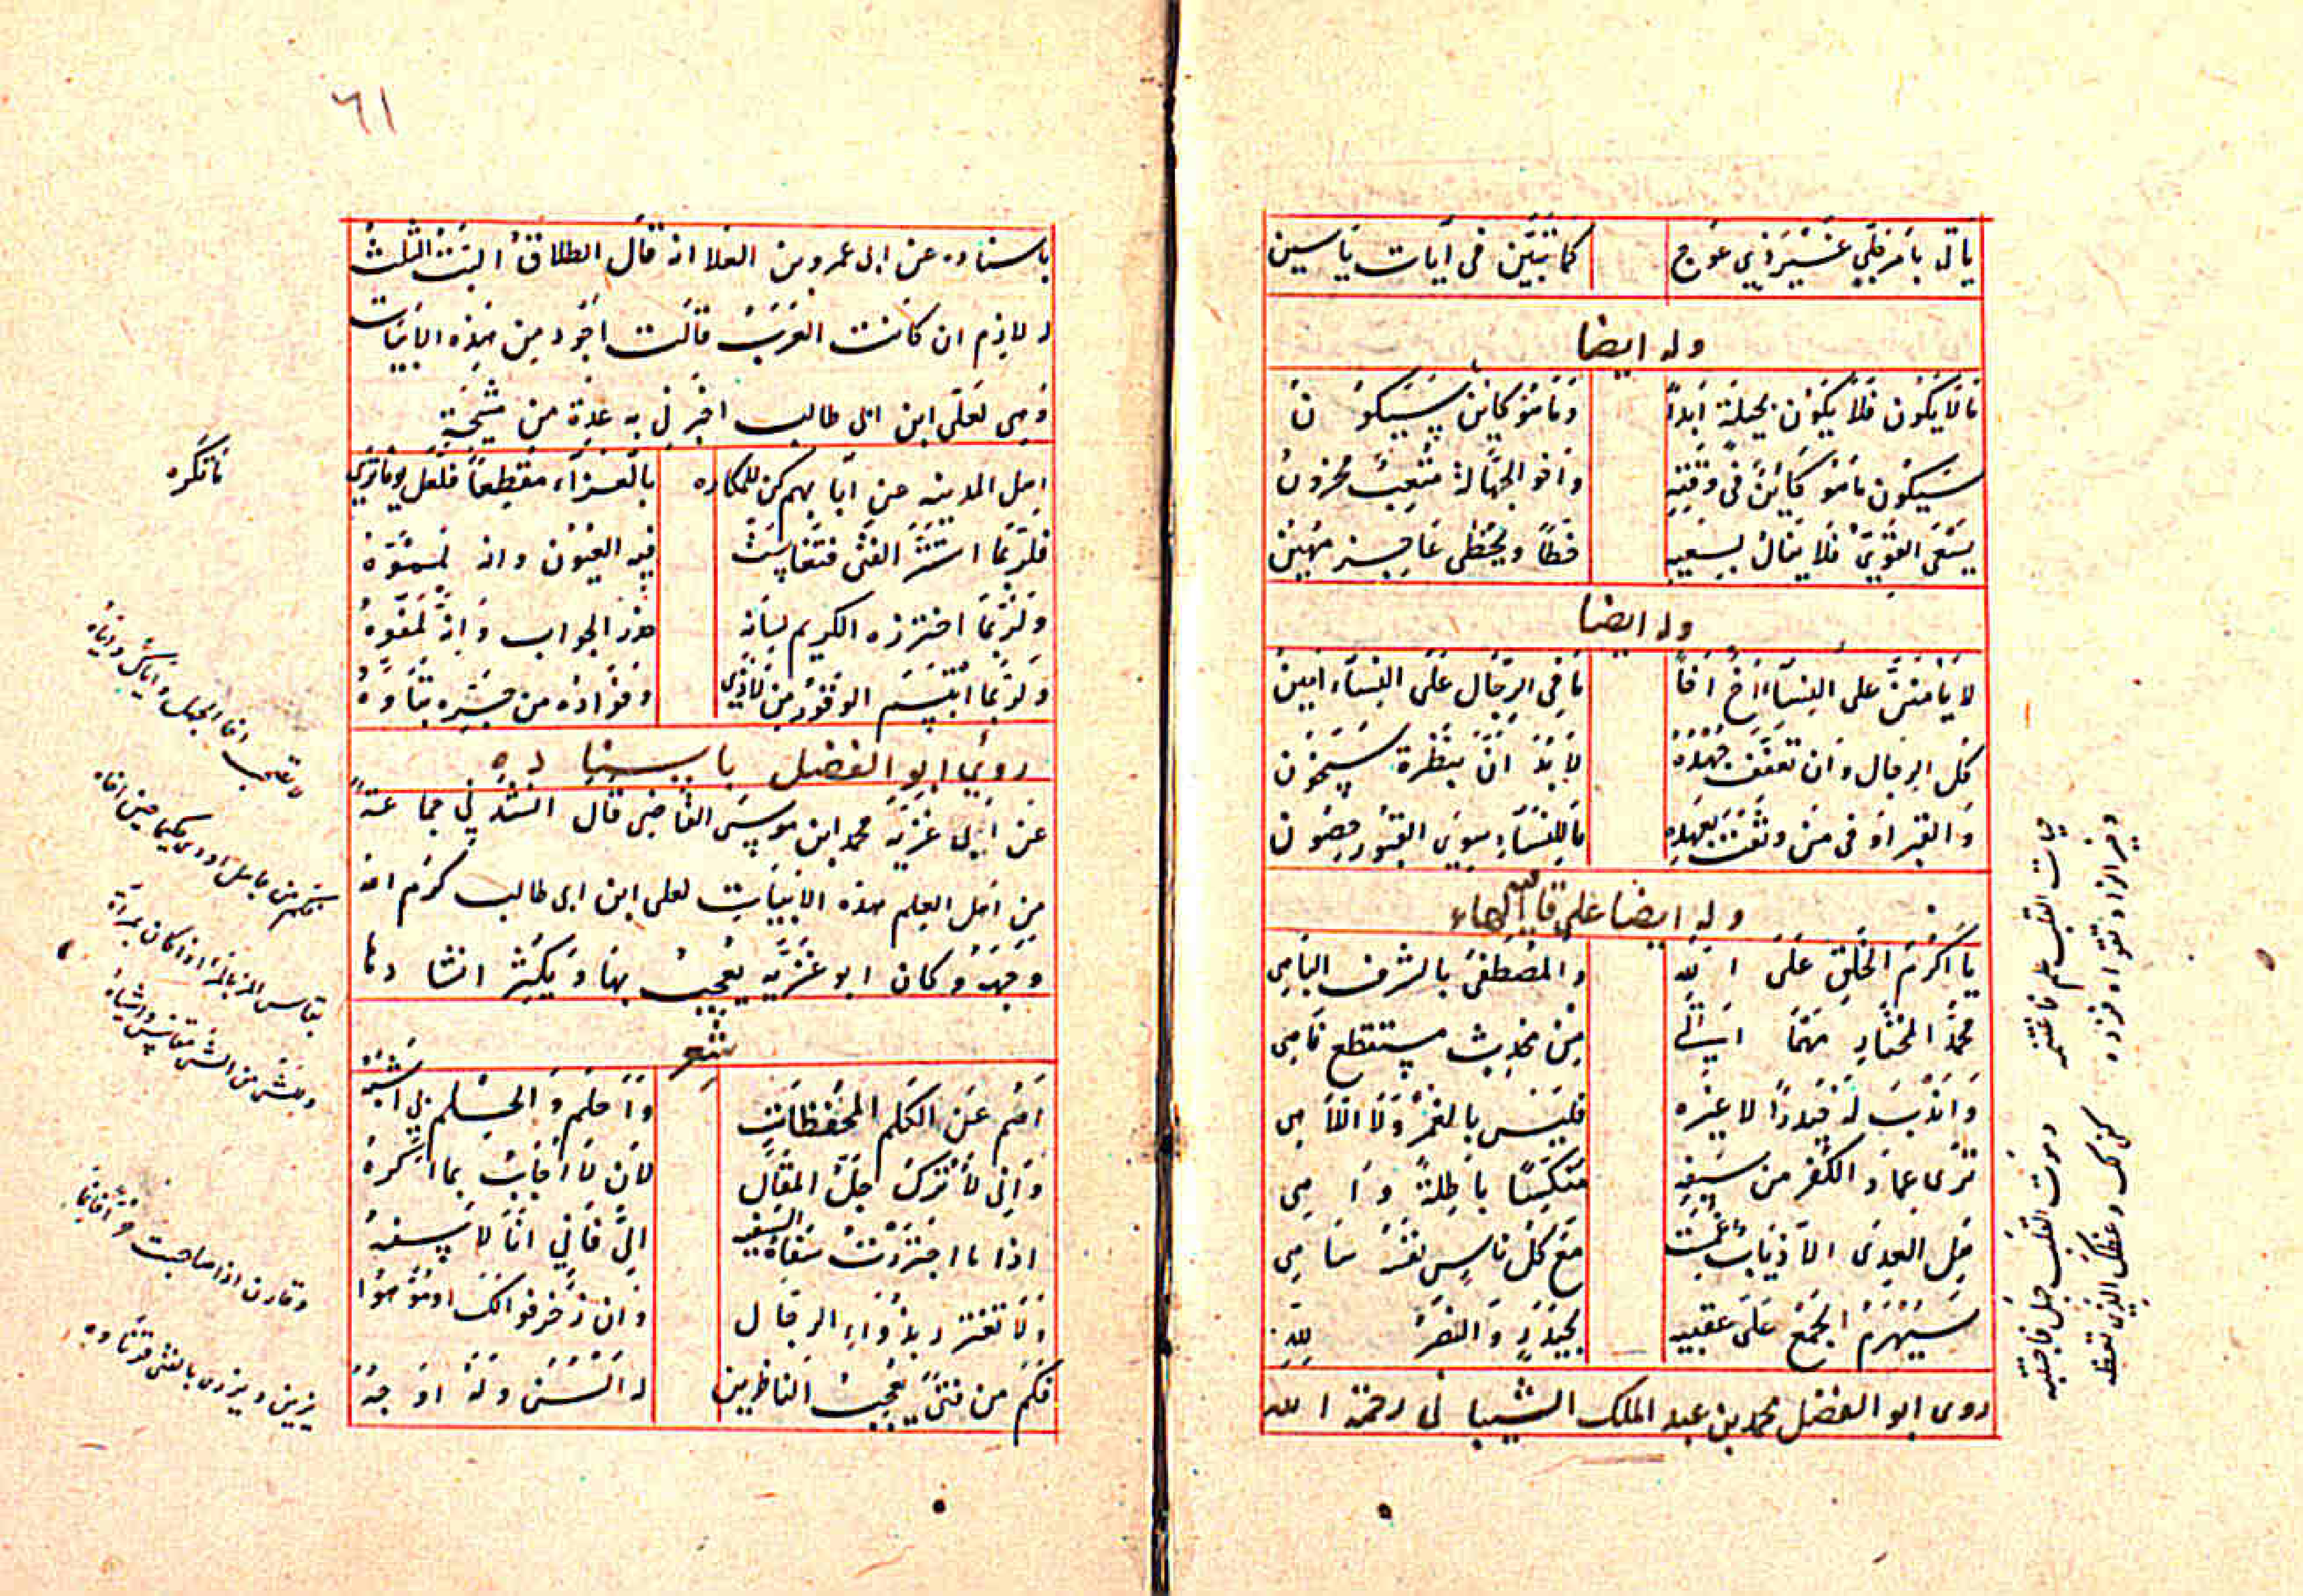 ياتى بامر جلى غير ذي عوج كما تبين فى آيات ياسين
وله ايضا
مالا يكون فلا يكون بحيلة ابدا وما هو كاين سيكون
سيكون ما هو كائن فى وقته واخو الجهالة متعب محزون
يسعى القوي فلا ينال بسعيه حظا ويحظى عاجز مهين
وله ايضا
لا يأمنن على النساء اخ اخا ما في الرجال على النساء امين
كل الرجال وان تعفف جهده لا بد ان بنظرة سيخون
والقبر اوفى من وثقت بعهده ما للنساء سوى القبور حصون
وله ايضا على قافية الهاء
يا اكرم الخلق على الله والمصطفى بالشرف الباهى
محمد المختار مهما اتى من محدث مستفظع ناهى
واندب له حيدرا لا غيره فليس بالغمر ولا اللاهى
ترى عماد الكفر من سيفه منكسا باطلة واهى
هل العدى الا ذياب عوت مع كل ناس نفسه ساهى
سيهزم الجمع على عقبيه بحيدر والنصر لله
روى ابو الفضل محمد بن عبد الملك الشيبانى رحمة الله
حيات القلب علم فاغتنمه
وموت القلب جهل فاجتنبه
وخير الزاد تقواه فزده
٦١
باسناده عن ابى عمرو بن العلا انه قال الطلاق البت الثلث
له لازم ان كانت العرب قالت اجود من هذه الابيات
وهى لعلى ابن ابى طالب اخبرنى به عدة من مشيخة
اهل المدينه عن ابآئهم كن للمكاره بالعزاء مقطعا فلعل يوما لا ترى
ما تكره
فلربما استتر الفتى فتنافست فيه العيون وانه لمموه
ولربما اختزن الكريم لسانه حذر الجواب وانه لمفوه
ولربما ابتسم الوقور من الاذى وفؤاده من حره يتأوه
روى ابو الفضل باسناده
عن ابى غزيه محمد ابن موسى القاضى قال انشدني جماعة
من اهل العلم هذه الابيات لعلى ابن ابى طالب كرم الله
وجهه وكان ابو غزيه يعجب بها ويكثر انشادها
شعر
اصم عن الكلم المحفظات واحلم والحلم بي اشبه
وانى لاترك جل المقال لان لا اجاب بما اكره
اذا ما اجتررت سفاه السفيه الي فاني انا لا سفه
ولا تغتر برواء الرجال وان زخرفوا لك او موهوا
فكم من فتى يعجب الناظرين له السن وله اوجه
ولا تصحب اخا الجهل واياك واياه
فكم من جاهل اردى حكيما حين اخاه
يقاس المرء بالمرء اذا كان
وللشئ من الشئ مقاييس واشباه
وقارن اذا صاحبت حرا فانما
يزين ويزرى بالفتى قرناؤه